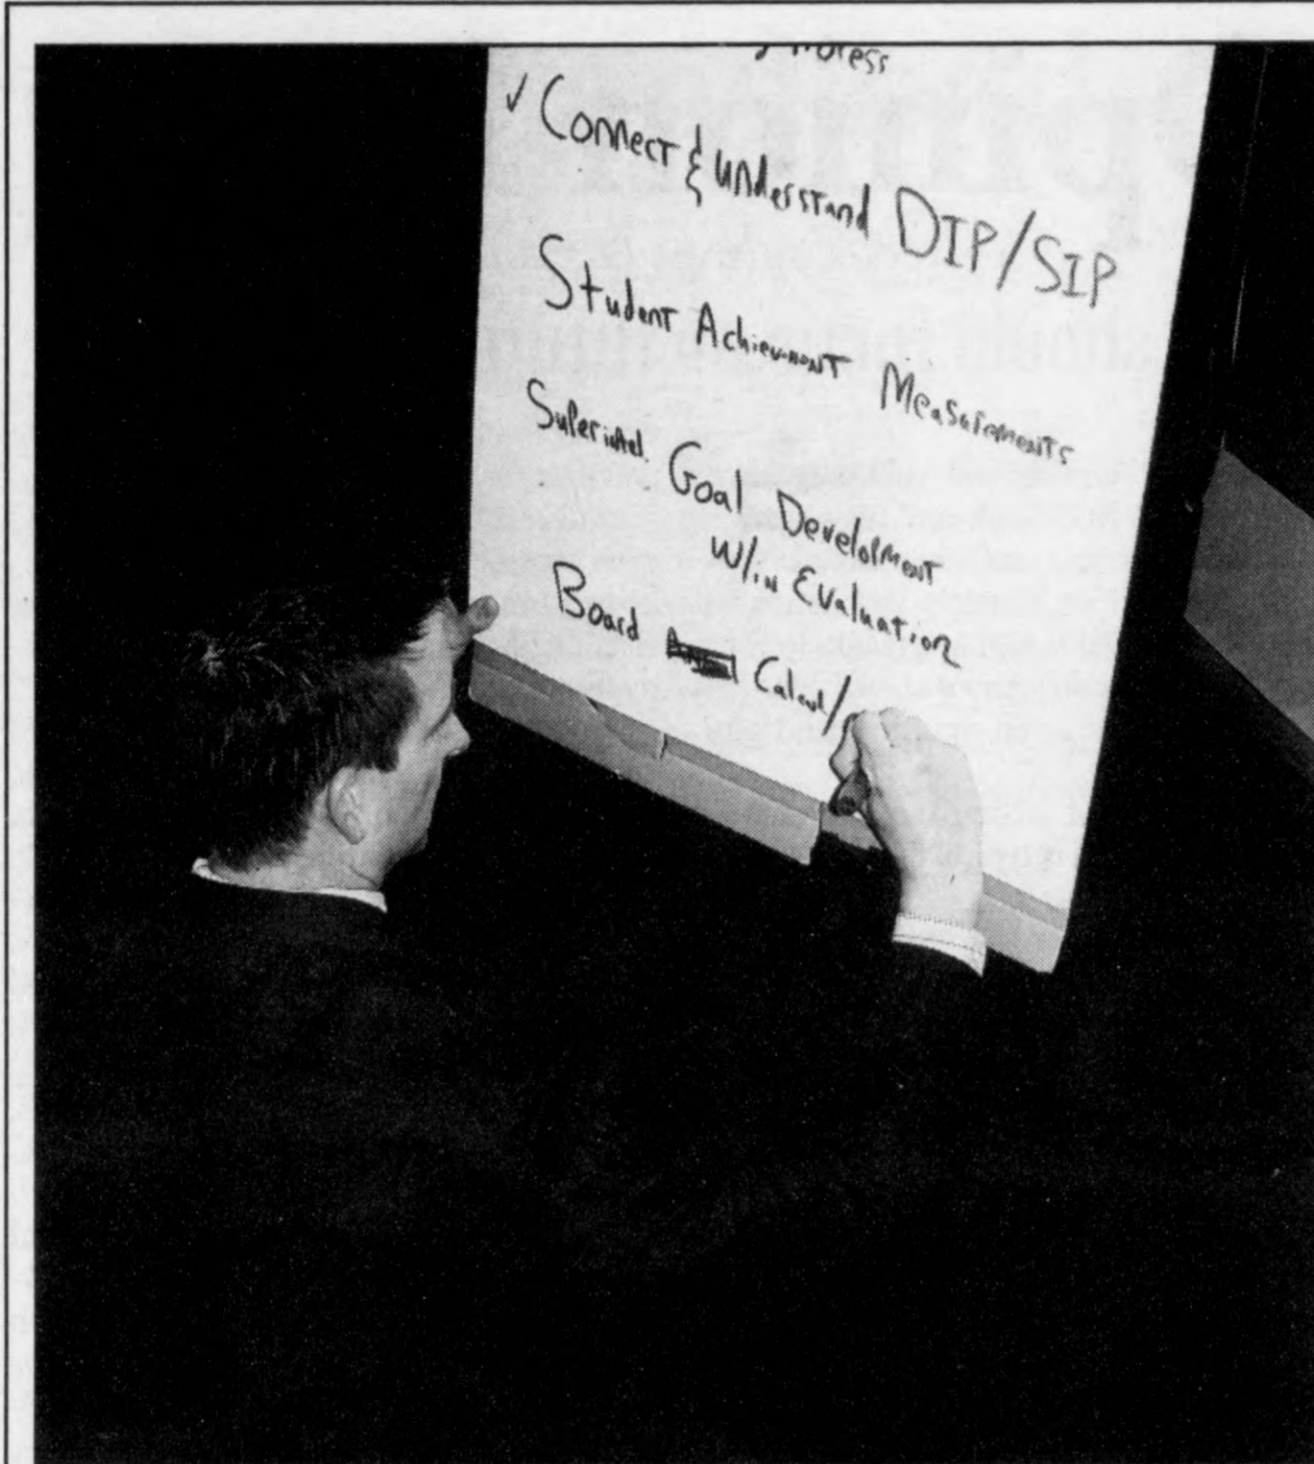 ✓ Connect & Understand DIP/SIP
Student Achievement Measurements
Superintd. Goal Development
w/in Evaluation
Board Calend/